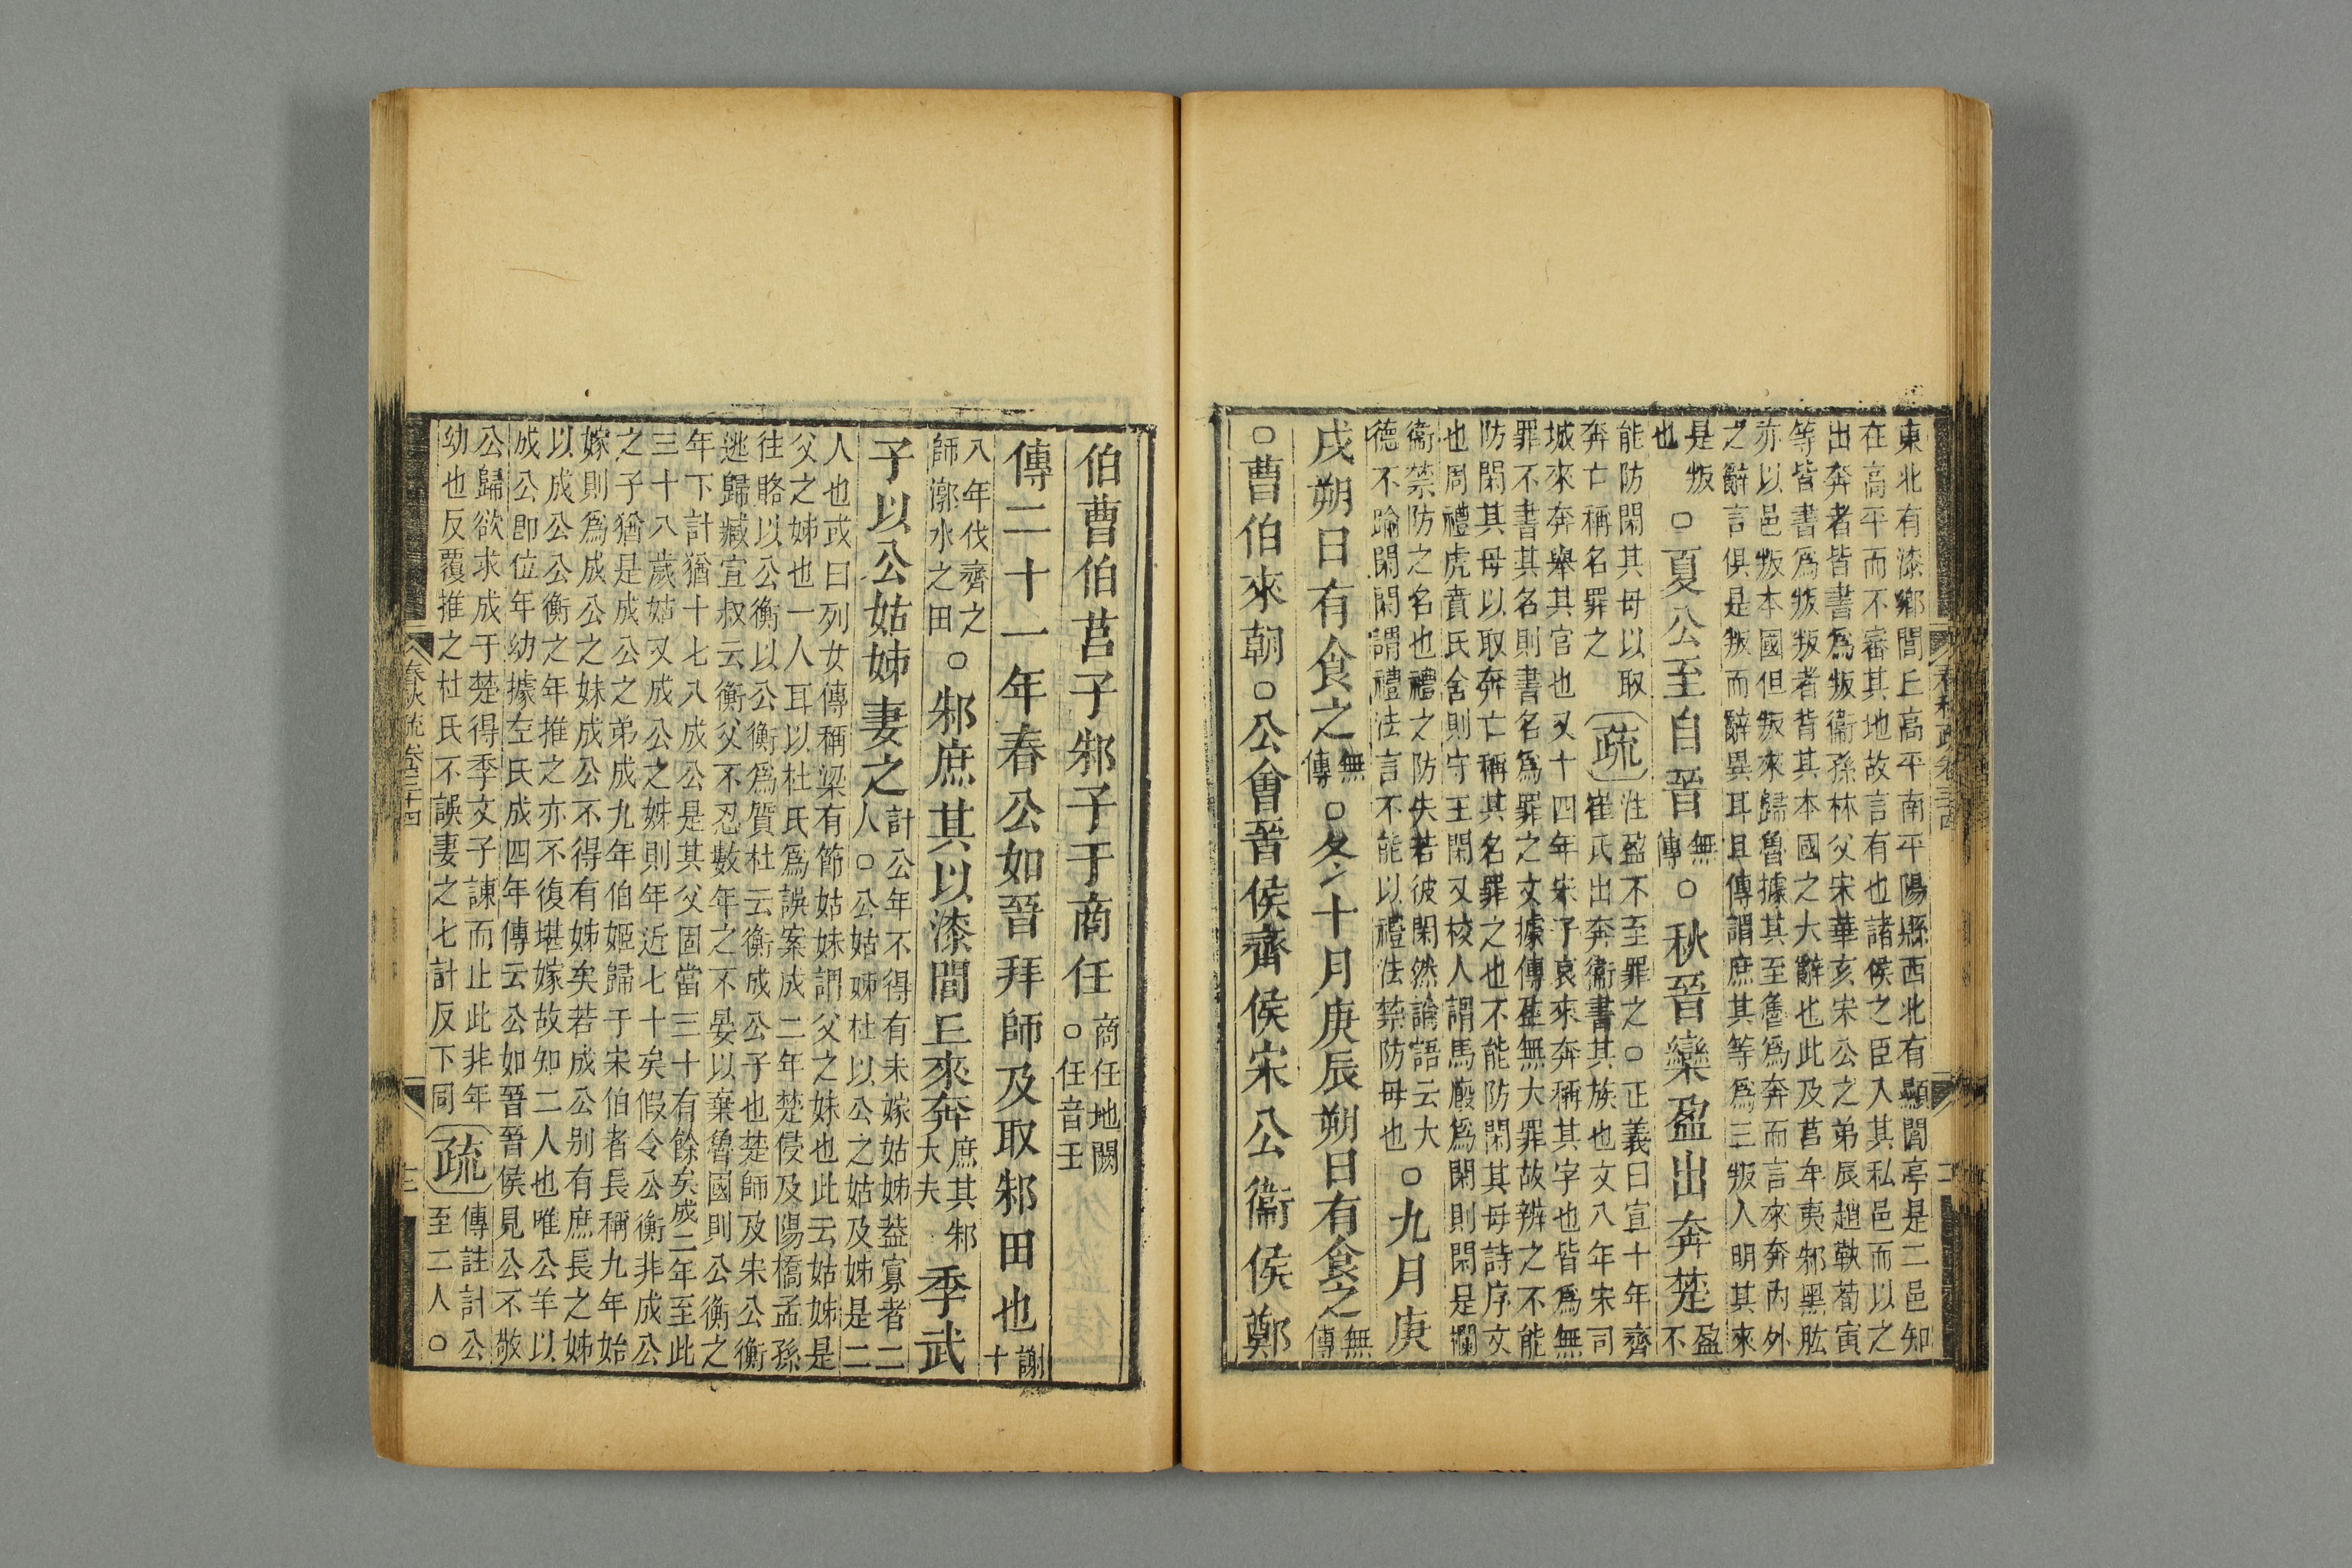 東北有漆鄉閭丘高平南平陽縣西北有顯閭亭是二邑知
在高平而不審其地故言有也諸侯之臣入其私邑而以之
出奔者皆書爲叛衞孫林父宋華亥宋公之弟辰趙鞅荀寅
等皆書爲叛叛者背其本國之大辭也此及莒牟夷邾黑肱
亦以邑叛本國但叛來歸魯據其至魯爲奔而言來奔內外
之辭言俱是叛而辭異耳且傳謂庶其等爲三叛人明其來
是叛
也
○夏公至自晉無傳○秋晉欒盈出奔楚盈不
能防閑其母以取
奔亡稱名罪之
疏
注盈不至罪之○正義曰宣十年齊
崔氏出奔衞書其族也文八年宋司
城來奔舉其官也又十四年宋子哀來奔稱其字也皆爲無
罪不書其名則書名爲罪之文據傳盈無大罪故辨之不能
防閑其母以取奔亡稱其名罪之也不能防閑其母詩序文
也周禮虎賁氏舍則守王閑又校人謂馬廄爲閑則閑是欄
衞禁防之名也禮之防失若彼閑然論語云大
德不踰閑閑謂禮法言不能以禮法禁防母也
○九月庚
戌朔日有食之無傳○冬十月庚辰朔日有食之無傳
○曹伯來朝○公會晉侯齊侯宋公衞侯鄭
伯曹伯莒子邾子于商任商任地闕○任音壬
傳二十一年春公如晉拜師及取邾田也謝十
八年伐齊之
師漷水之田
○邾庶其以漆閭丘來奔庶其邾大夫季武
子以公姑姊妻之計公年不得有未嫁姑姊蓋寡者二
人○公姑姊杜以公之姑及姊是二
人也或曰列女傳稱梁有節姑妹謂父之妹也此云姑姊是
父之姊也一人耳以杜氏爲誤案成二年楚侵及陽橋孟孫
往賂以公衡以公衡爲質杜云衡成公子也楚師及宋公衡
逃歸臧宣叔云衡父不忍數年之不晏以棄魯國則公衡之
年下計猶十七八成公是其父固當三十有餘矣成二年至此
三十八歲姑又成公之姊則年近七十矣假令公衡非成公
之子猶是成公之弟成九年伯姬歸于宋伯者長稱九年始
嫁則爲成公之妹成公不得有姊矣若成公别有庶長之姊
以成公公衡之年推之亦不復堪嫁故知二人也唯公羊以
成公即位年幼據左氏成四年傳云公如晉晉侯見公不敬
公歸欲求成于楚得季文子諫而止此非年
幼也反覆推之杜氏不誤妻之七計反下同
疏
傳註計公
至二人○
春秋疏卷三十四